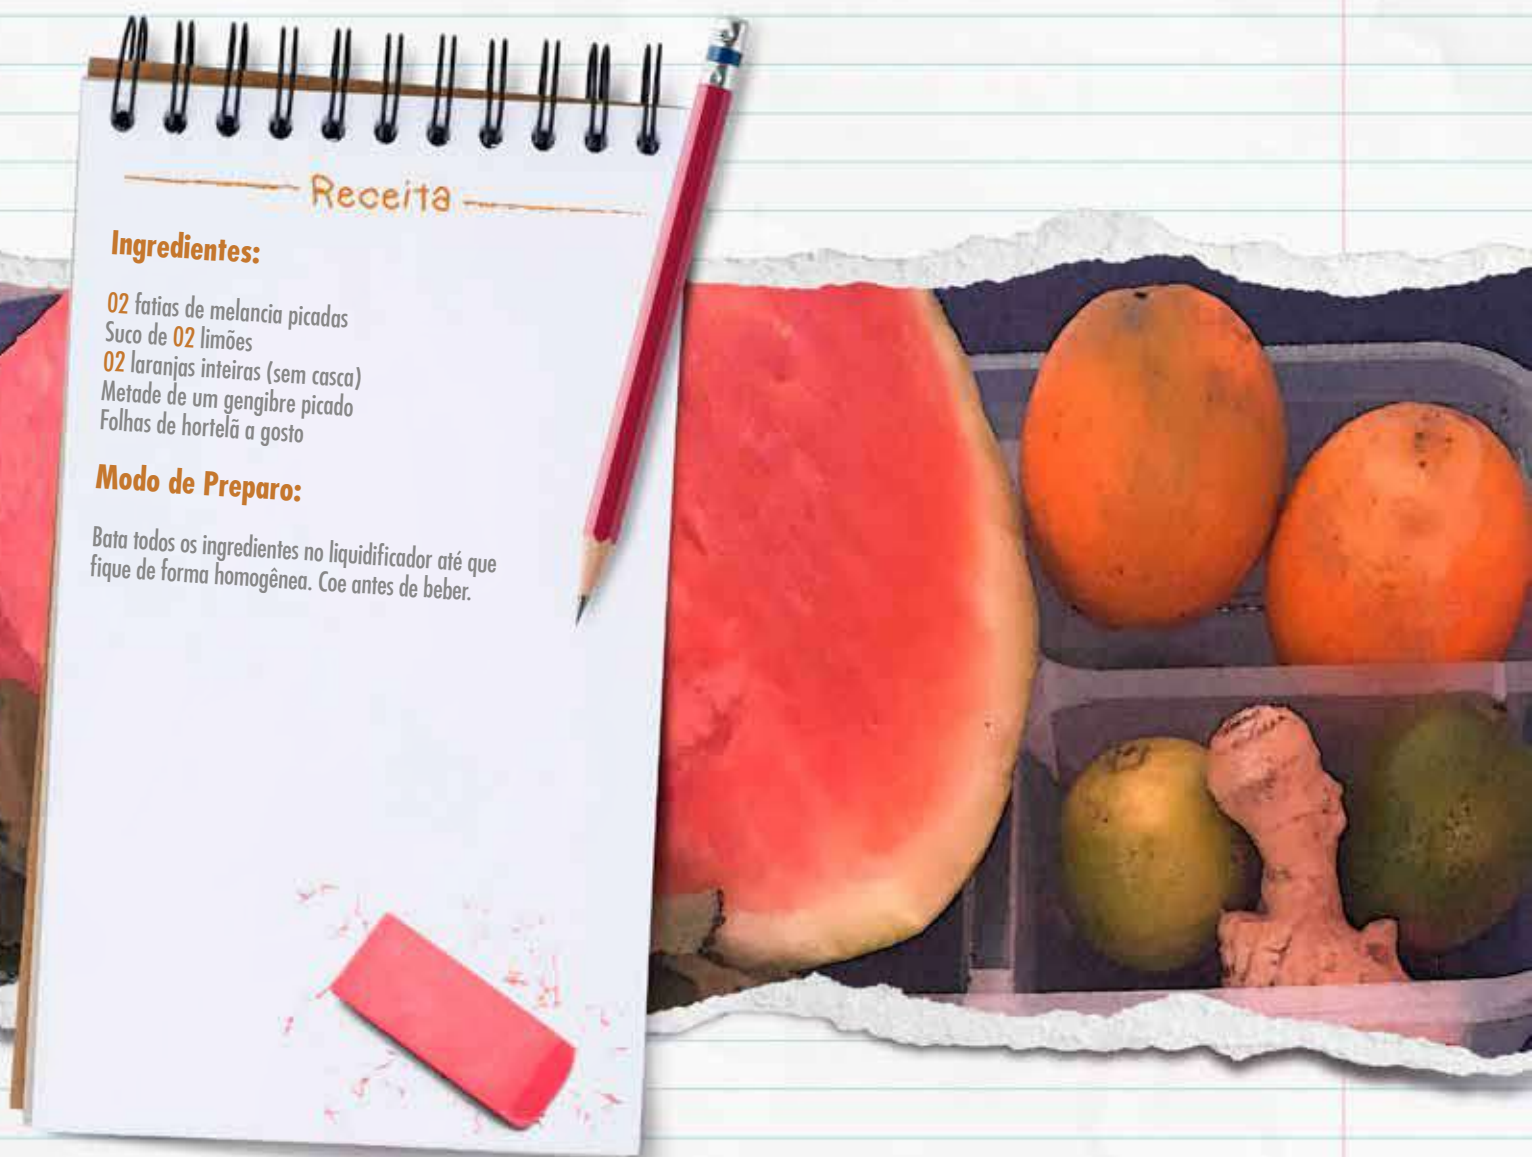 Receita
Ingredientes:
02 fatias de melancia picadas
Suco de 02 limões
02 laranjas inteiras (sem casca)
Metade de um gengibre picado
Folhas de hortelã a gosto
Modo de Preparo:
Bata todos os ingredientes no liquidificador até que
fique de forma homogênea. Coe antes de beber.